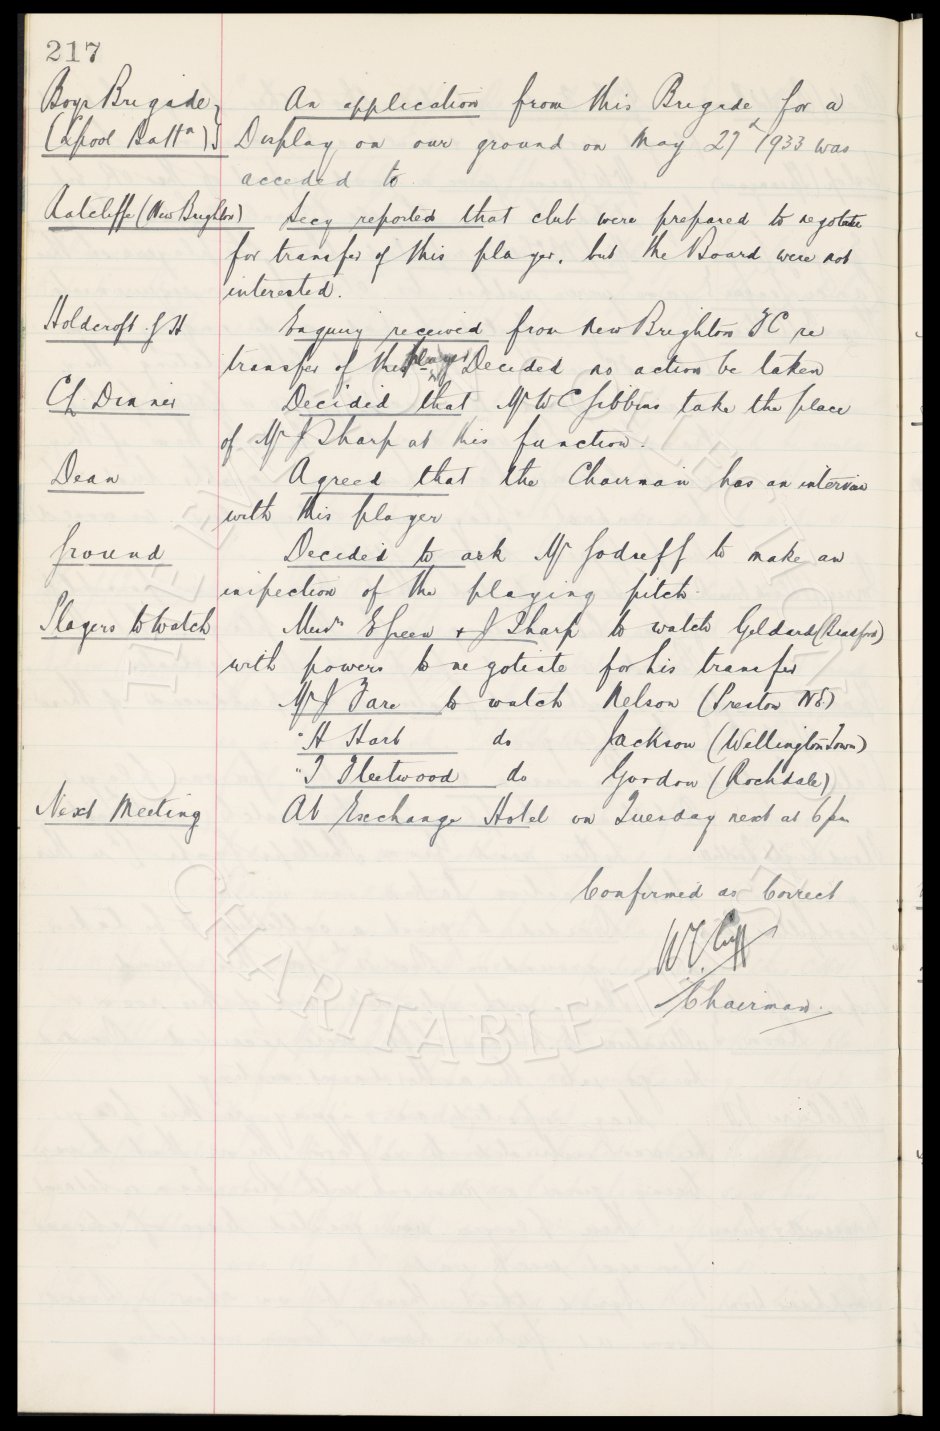 217
Boys Brigade
(Lpool Battn)
An application from this Brigade for a
Display on our ground on May 27th 1933 was
acceded to
Ratcliffe (New Brighton)
Secy reported that club were prepared to negotiate
for transfer of this player, but the Board were not
interested.
Holdcroft G H
Enquiry received from New Brighton FC re
transfer of this player Decided no action be taken
CL Dinner
Decided that Mr W C Gibbins take the place
of Mr J Sharp at this function.
Dean
Agreed that the Chairman has an interview
with this player
Ground
Decided to ask Mr Godseff to make an
inspection of the playing pitch.
Players to watch
Messrs E Green & J Sharp to watch Geldard (Bradford)
with powers to negotiate for his transfer
Mr J Fare to watch Nelson (Preston N E)
" H Hart do Jackson (Wellington Town)
" J Fleetwood do Gordon (Rochdale)
Next Meeting
At Exchange Hotel on Tuesday next at 6 pm
Confirmed as Correct
W C Cuff
Chairman.
THE EVERTON COLLECTION
CHARITABLE TRUST